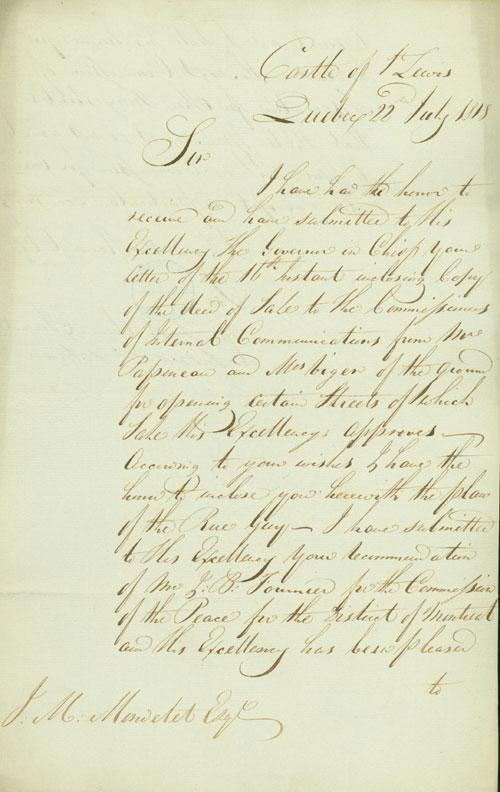 Castle of St Lewis
Quebec 22nd July 1818
Sir
I have had the honor to
receive and have submitted to His
Excellency the Governor in Chief your
Letter of the 16th Instant inclosing Copy
of the deed of Sale to the Commissioners
of Internal Communications from Mr
Papineau and Mrs Viger of the ground
for opening certain Streets of which
Sale His Excellency approves —
According to your wishes I have the
honor to inclose you herewith the plan
of the Rue Guy — I have submitted
to His Excellency your recommendation
of Mr J: B: Fournier for the Commission
of the Peace for the District of Montreal
and His Excellency has been pleased
to
J. M: Mondelet Esqr